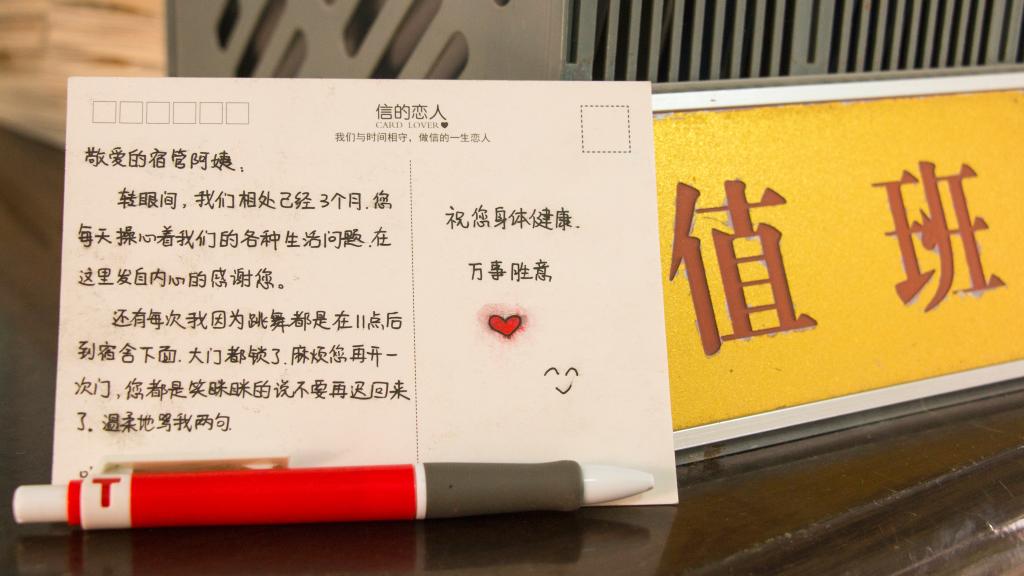 信的恋人
CARD LOVER
我们与时间相守,做信的一生恋人
敬爱的宿管阿姨:
转眼间,我们相处已经3个月.您
每天操心着我们的各种生活问题.在
这里发自内心的感谢您。
还有每次我因为跳舞都是在11点后
到宿舍下面.大门都锁了.麻烦您再开一
次门,您都是笑眯眯的说不要再迟回来
了。温柔地骂我两句
祝您身体健康.
万事胜意
值班
T